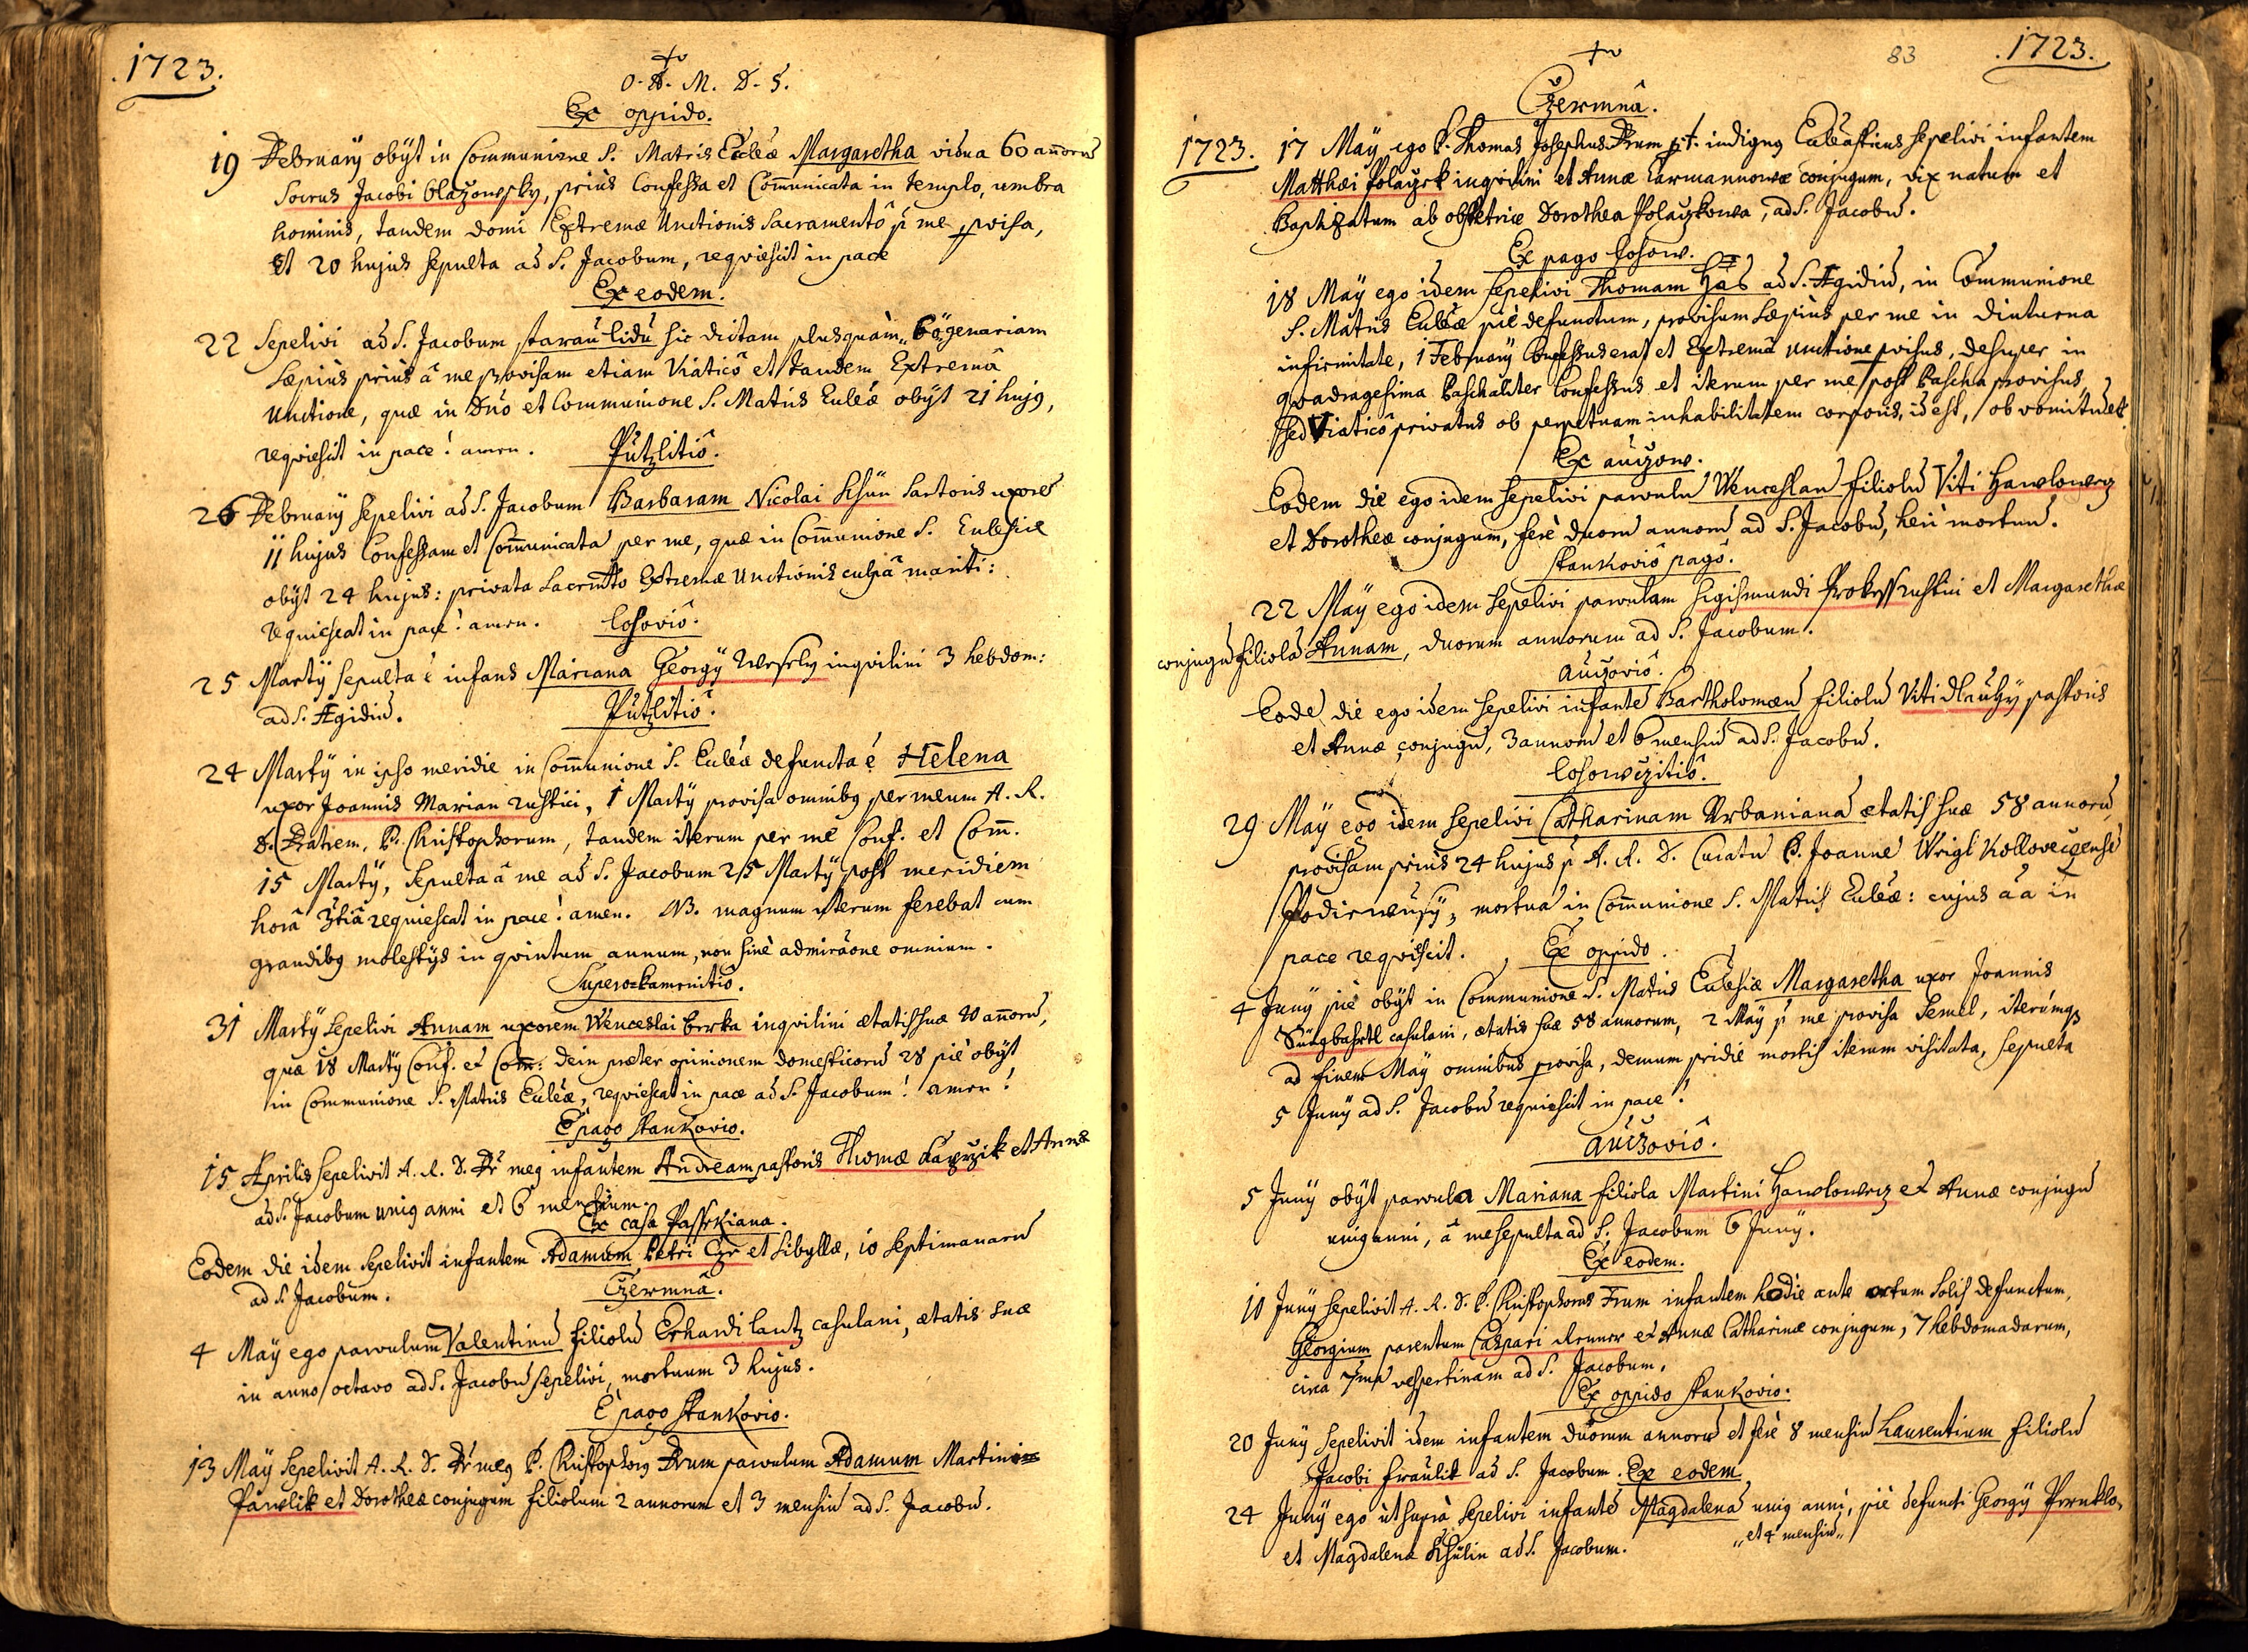 .1723.
O. A. M. D. S.
Ex oppido.
19 February obÿt in Communione S. Matris Eccleæ Margaretha vidua 60 annorũ
Socrus Jacobi blažowsky, prius Confessa et Communicata in templo, umbra
hominis, tandem domi Extremæ Unctionis Sacramentô p me pvisa,
et 20 hujus sepulta ad S. Jacobum, requiescit in pace
Ex eodem.
22 Sepelivi ad S. Jacobum starau lidu sic dictam plusquàm 60genariam
sæpius prius â me provisam etiam Viaticô et tandem Extremâ
Unctione, quæ in Dnô et Communione S. Matris Eccleæ obÿt 21 hujg,
requiescit in pace! amen. Putzlitiô.
26 February sepelivi ad S. Jacobum Barbaram Nicolai Khün sartoris uxorẽ
11 hujus Confessam et Communicatã per me, quæ in Communione S. Ecclesiæ
obÿt 24 hujus: privata Sacrmto Extremæ Unctionis culpâ mariti:
requiescat in pace! amen. Cosoviô.
25 Martÿ sepulta ẽ infans Mariana Georgÿ Wesely inqvilini 3 hebdom:
ad S. Ægidiũ. Putzlitiô.
24 Martÿ in ipso meridie in Communione S. Eccleæ defuncta ẽ Helena
uxor Joannis Marian rustici, 1 Martÿ provisa omnibg per meum A. R.
D. Fratrem, P. Christophorum, tandem iterum per me Conf. et Comm.
15 Martÿ, sepulta â me ad S. Jacobum 25 Martÿ post meridiem
horâ 3tiâ requiescat in pace! amen. NB. magnum uterum ferebat cum
grandibg molestÿs in qvintum annum, non sine admiraone omnium.
Superokamenitio.
31 Martÿ sepelivi Annam uxorem Wenceslai berka inqvilini ætatis suæ 20 annorũ,
quæ 18 Martÿ Conf. et Comm: dein præter opinionem domesticorũ 28 piè obÿt
in Communione S. Matris Eccleæ, reqviescat in pace ad S. Jacobum! amen!
E pago Stankovio.
15 Aprilis sepelivit A. R. D. Fr meg infantem Andream pastoris Thomæ et Annæ
ad S. Jacobum unig anni et 6 mensium.
Ex casa Passekiana.
Eodem die idem sepelivit infantem Adamum Petri Czr et Sibyllæ, 10 septimanarũ
ad S. Jacobum. Czermnâ.
4 Maÿ ego parvulum Valentinũ filiolũ Erhardi lantz casulani, ætatis suæ
in anno octavo ad S. Jacobũ sepelivi, mortuum 3 hujus.
E pago Stankovio.
13 Maÿ sepelivit A. R. D. Fr meg P. Christophorg Frum parvulum Adamum Martini
Pawlik et Dorotheæ conjugum filiolum 2 annorum et 3 mensiũ ad S. Jacobũ.
83
.1723.
Czermnâ.
1723. 17 Maÿ ego P. Thomas Josephus Frum p.t. indigng Eccleasticus sepelivi infantem
Matthæi Polaczek inqvilini et Annæ Carmannowæ conjugum, vix natum et
Baptizatum ab obstetrice Dorothea Polaczkowa, ad S. Jacobũ.
Ex pago Cosow.
18 Maÿ ego idem sepelivi Thomam Has ad S. Ægidiũ, in Communione
S. Matris Eccleæ piè defunctum, provisum sæpius per me in diuturna
infirmitate, 1 February Confessus erat et Extremâ Unctione pvisus, desuper in
qvadragesima Paschaliter Confessus et iterum per me post Pascha provisus,
sed Viaticô privatus ob perpetuam inhabilitatem corporis, id est, ob vomitũ etc.
Ex auczow.
Eodem die ego idem sepelivi parvulũ Wenceslaũ filiolũ Viti Hawlowicz
et Dorotheæ conjugum, ferè duorũ annorũ ad S. Jacobũ, heri mortuũ.
Stankoviô pagô.
22 Maÿ ego idem sepelivi parvulam Sigismundi Prokess rustici et Margarethæ
conjugũ filiolã Annam, duorum annorum ad S. Jacobum.
Auczoviô.
Eodẽ die ego idem sepelivi infantẽ Bartholomæũ filiolũ Viti dlauhÿ pastoris
et Annæ conjugũ, 3 annorũ et 6 mensiũ ad S. Jacobũ.
Cosowczitiô.
29 Maÿ ego idem sepelivi Catharinam Urbanianã ætatis suæ 58 annorũ,
provisam prius 24 hujus p A. R. D. Curatũ P. Joannẽ Wrigl Kolloveczensẽ
Podiewusÿ, mortuã in Communione S. Matris Eccleæ: cujus aa in
pace requiescit. Ex oppido.
4 Junÿ piè obÿt in Communione S. Matris Ecclesiæ Margaretha uxor Joannis
casulani, ætatis suæ 58 annorum, 2 Maÿ p me provisa semel, iterúmqz
ad finem Maÿ omnibus provisa, demum pridie mortis iterum visitata, sepulta
5 Junÿ ad S. Jacobũ requiescit in pace!
Auczoviô.
5 Junÿ obÿt parvula Mariana filiola Martini Hawlowicz et Annæ conjugũ
unig anni, â me sepulta ad S. Jacobum 6 Junÿ.
Ex eodem.
10 Junÿ sepelivit A. R. D. P. Christophorus Frum infantem hodie ante ortum solis defunctum,
Georgium parentum Caspari Renner et Annæ Catharinæ conjugum, 7 hebdomadarum,
circa 7mã vespertinam ad S. Jacobum.
Ex oppido Stankovio.
20 Junÿ sepelivit idem infantem duorum annorũ et ferè 8 mensiũ Laurentium filiolũ
Jacobi firaulik ad S. Jacobum. Ex eodem.
24 Junÿ ego ùt suprà sepelivi infantẽ Magdalenã unig anni, piè defuncti Georgÿ
„et 4 mensiũ„
et Magdalenæ Khülin ad S. Jacobum.